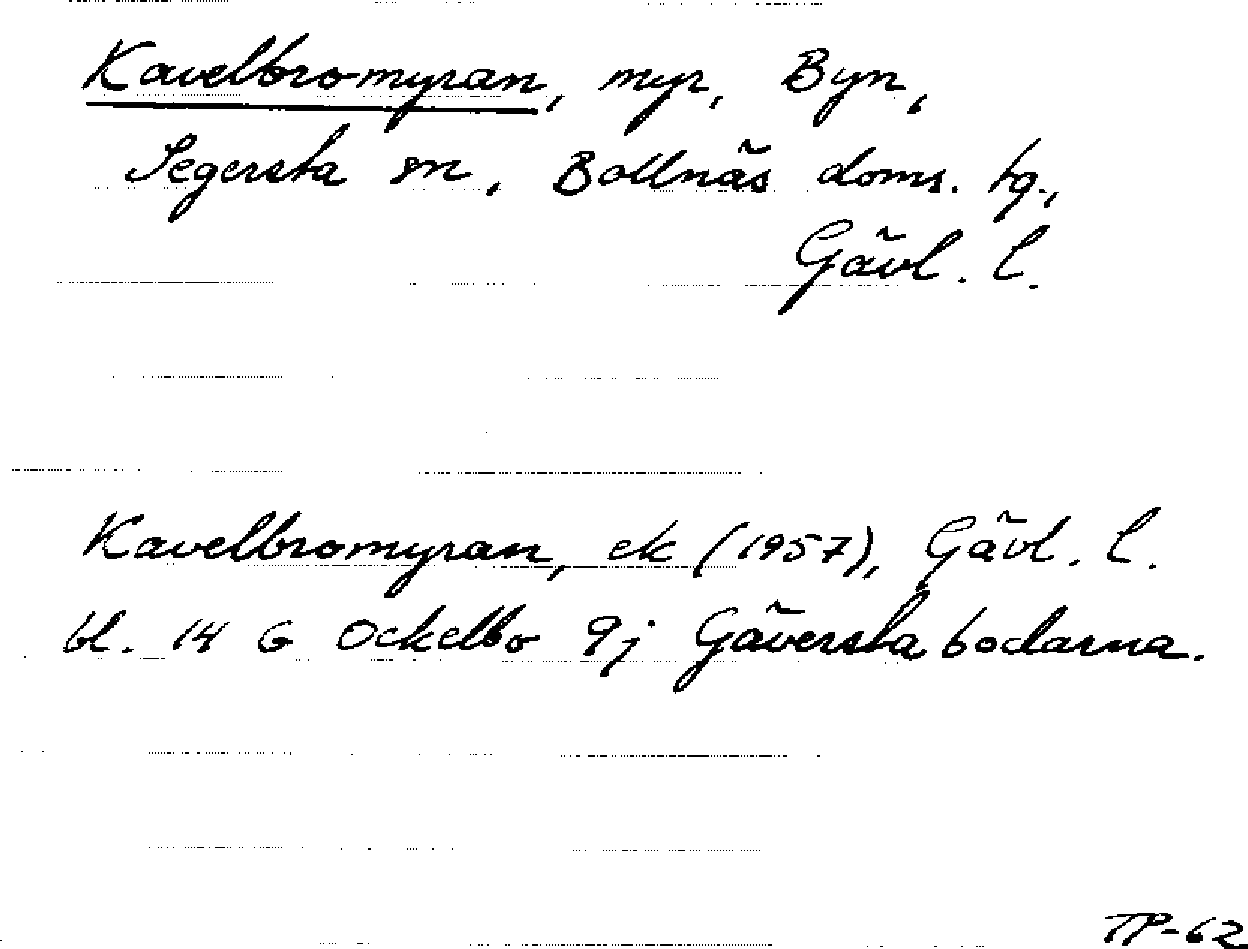 Kavelbromyran, myr, Byn,
Segersta sn, Bollnäs doms. tg.,
Gävl. l.
Kavelbromyran, ek (1957), Gävl. l.
bl. 14 G Ockelbo 9j Gäverstabodarna.
TP-62